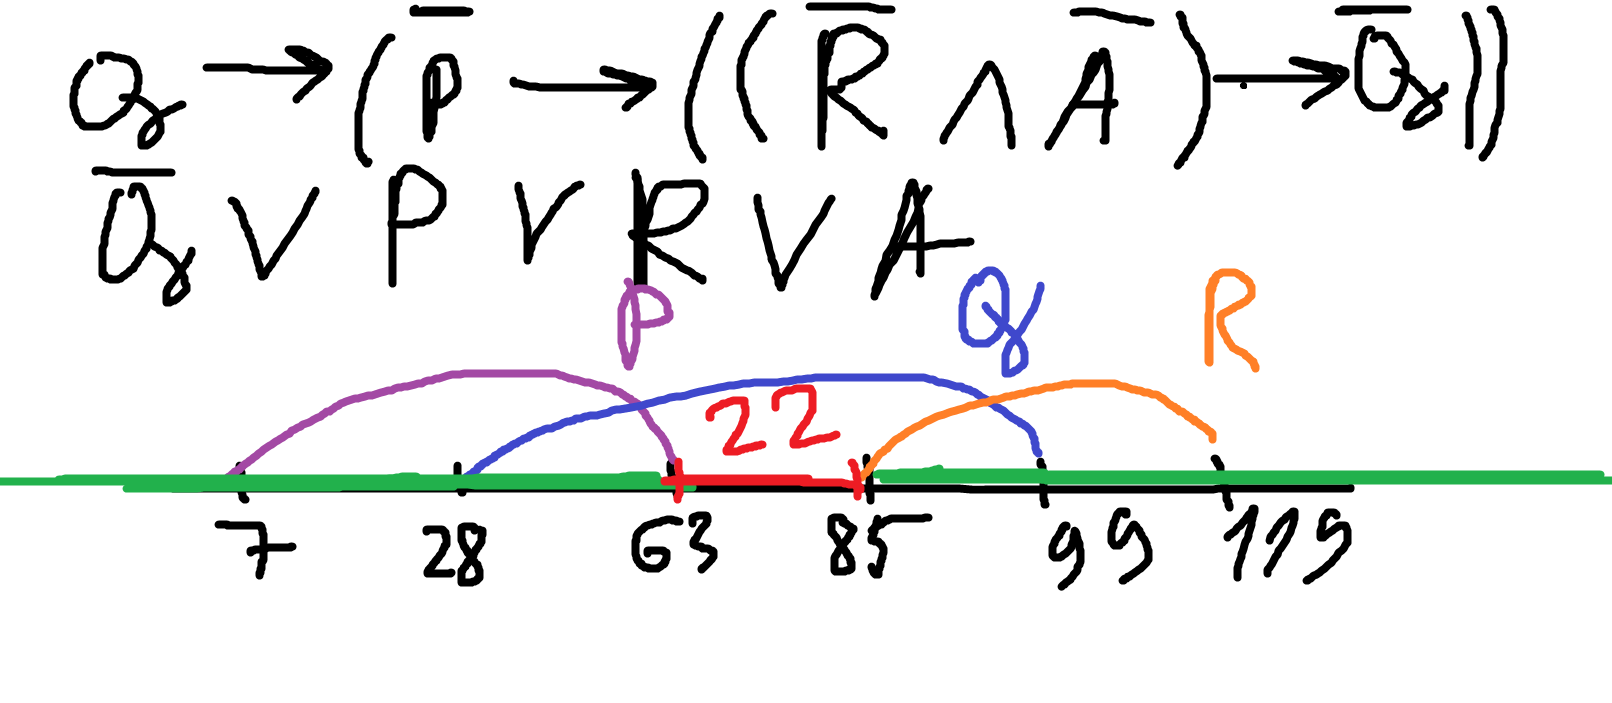 Q → (P̅ → ((R̅ ∧ A̅) → Q̅))
Q̅ ∨ P ∨ R ∨ A
P Q R
22
7 28 63 85 99 119